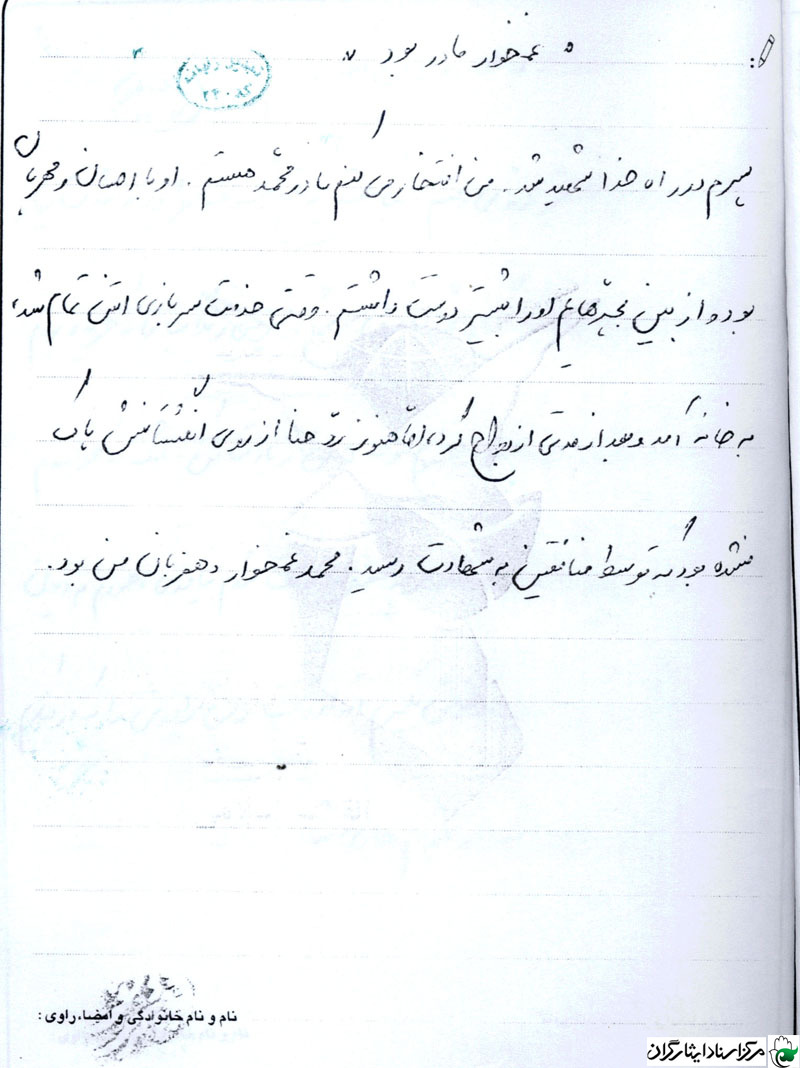 « غمخوار مادر بود »
پسرم در راه خدا شهید شد. من افتخار می کنم مادر محمد هستم. او با احسان و مهربان
بود و از بین بچه هایم او را بیشتر دوست داشتم. وقتی خدمت سربازی اش تمام شد،
به خانه آمد و بعد از مدتی ازدواج کرد، اما هنوز رد حنا از روی انگشتانش پاک
نشده بود که توسط منافقین به شهادت رسید. محمد غمخوار و همزبان من بود.
نام و نام خانوادگی و امضاء راوی:
مرکز اسناد ایثارگران